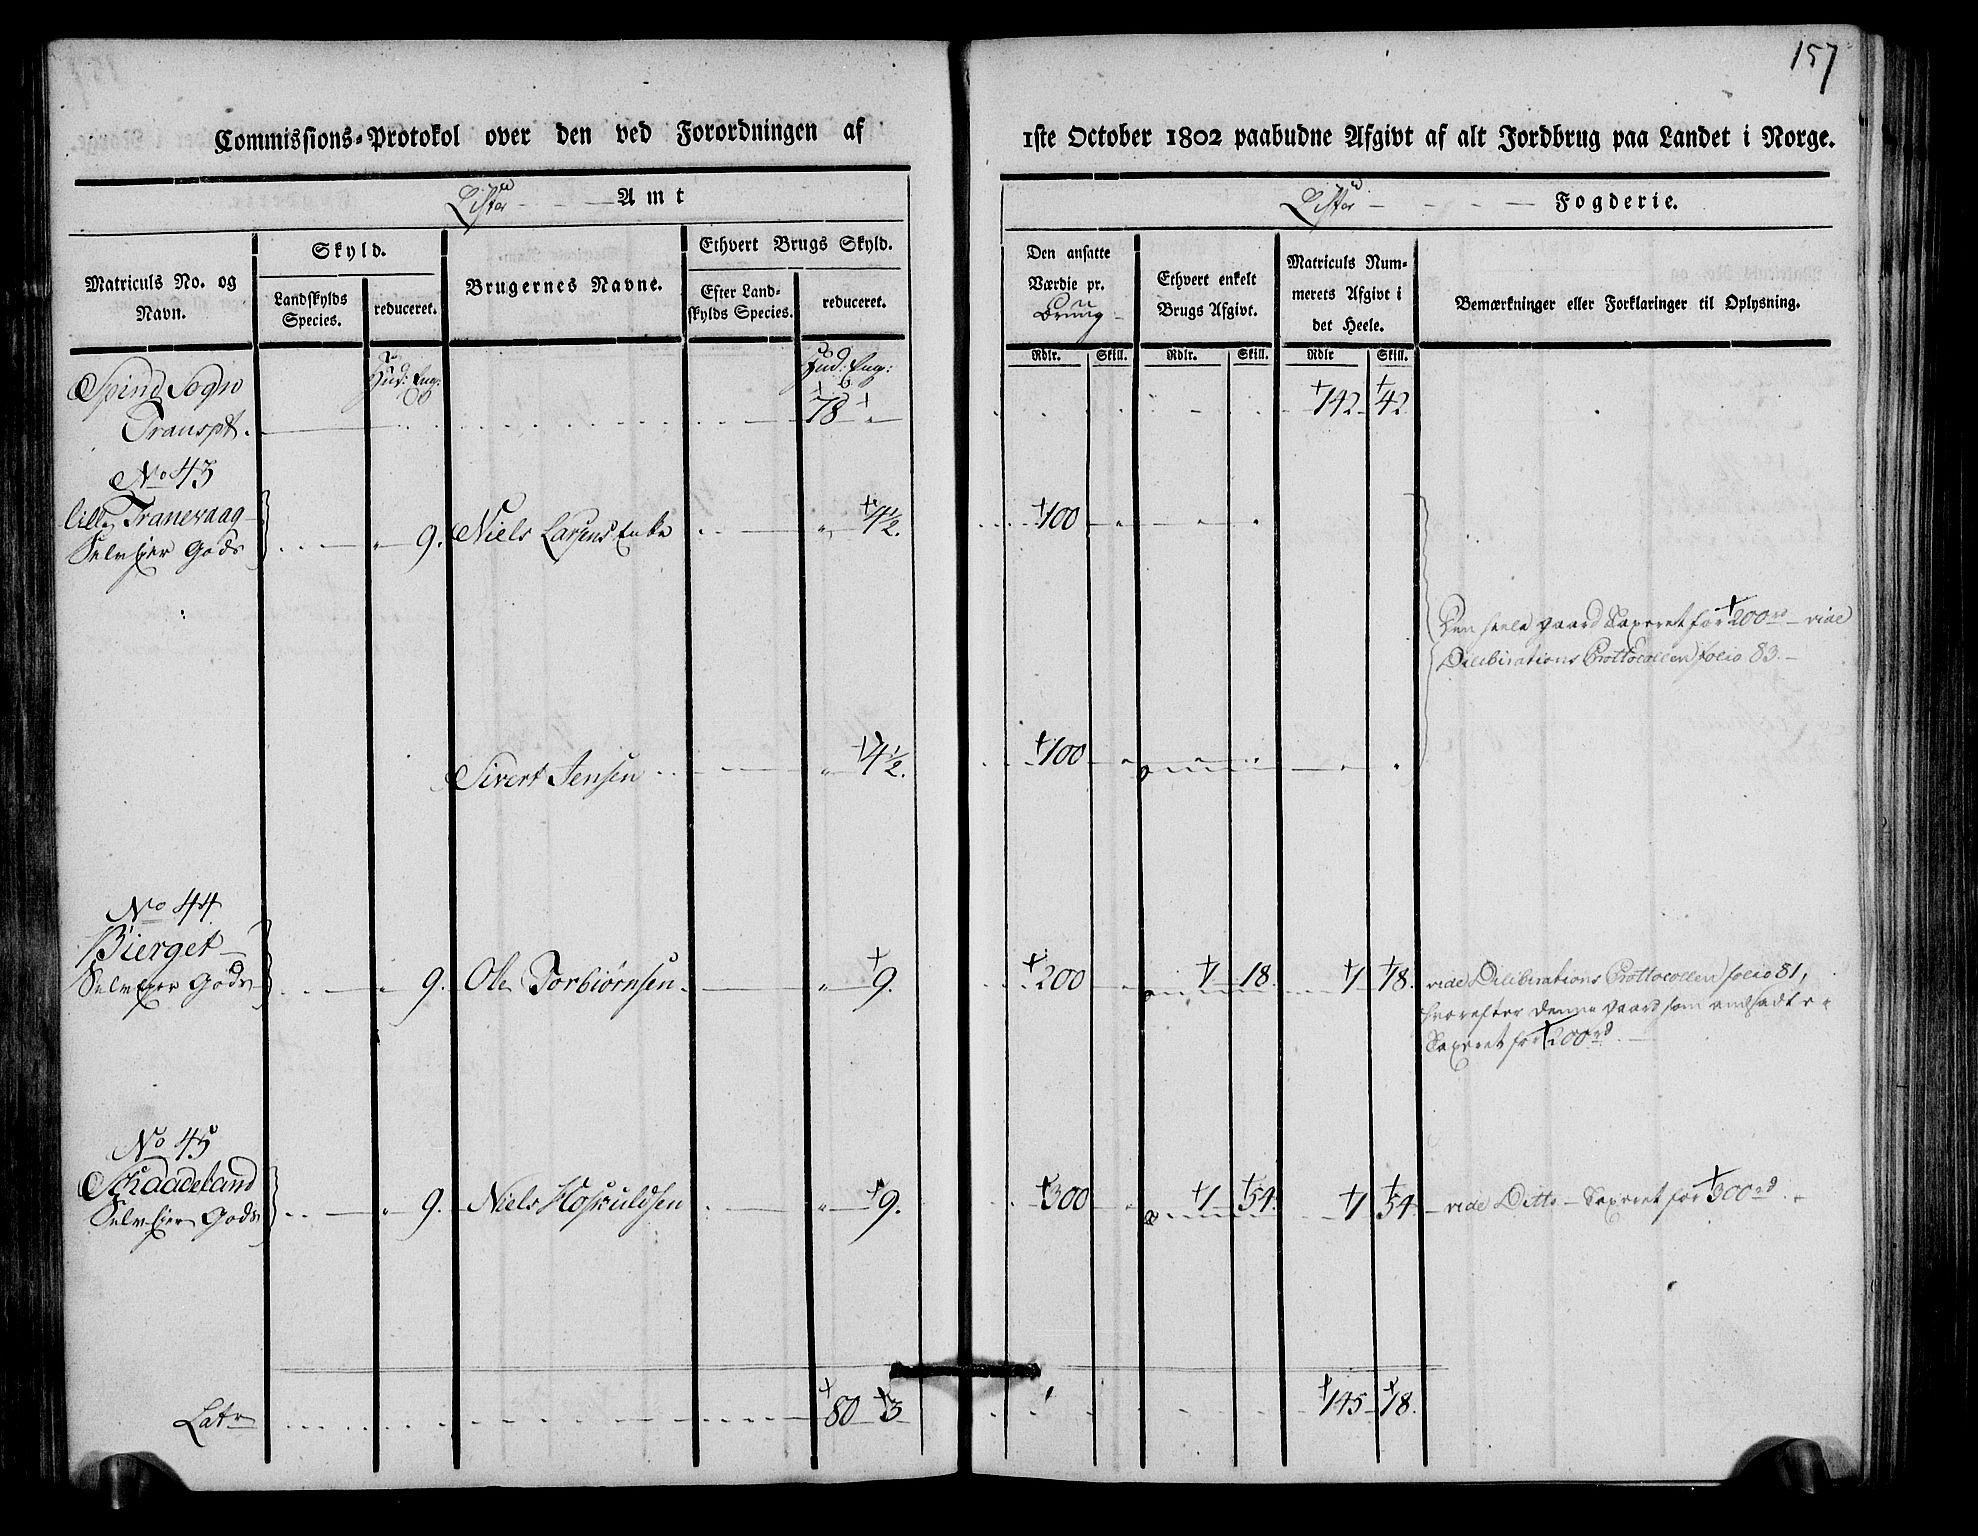 157
Commissions-Protokol over den ved Forordningen af 1ste October 1802 paabudne Afgivt af alt Jordbrug paa Landet i Norge.
Lister Amt
Lister Fogderie.
Matriculs No. og Navn.
Skyld.
Landskylds Species.
reduceret.
Brugernes Navne.
Ethvert Brugs Skyld.
Efter Landskylds Species.
reduceret.
Den ansatte Værdie pr. Brug
Ethvert enkelt Brugs Afgivt.
Matriculs Nummerets Afgivt i det Heele.
Bemærkninger eller Forklaringer til Oplysning.
Rdlr. Skill. Rdlr. Skill. Rdlr Skill.
Hud: Eng: Hud: Eng:
Spind Sogn
Transpt. 78 " 142 42
No 43
Lille Tranevaag
Selveier Gods " 9. Niels Larsens Enke " 4½. 100 "
Den heele Gaard Taxeret for 200rd vide
Deliberations Prottocollen folio 83.
Sivert Jensen " 4½. 100 "
No 44
Bierget
Selveier Gods " 9. Ole Torbiørnsen " 9. 200 " 1 18. 1 18. vide Deliberations Prottocollen folio 81,
hvorefter denne Gaard som andsadt er
Taxeret for 200rd.
No 45
Schaadeland
Selveier Gods " 9. Niels Hoskuldsen " 9. 300 " 1 54. 1 54 vide Ditto Taxeret for 300rd.
Latr 80 3 145 18.